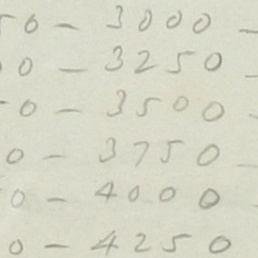 50 - 3000 -
00 - 3250 -
50 - 3500 -
0 - 3750 -
0 - 4000 -
0 - 4250